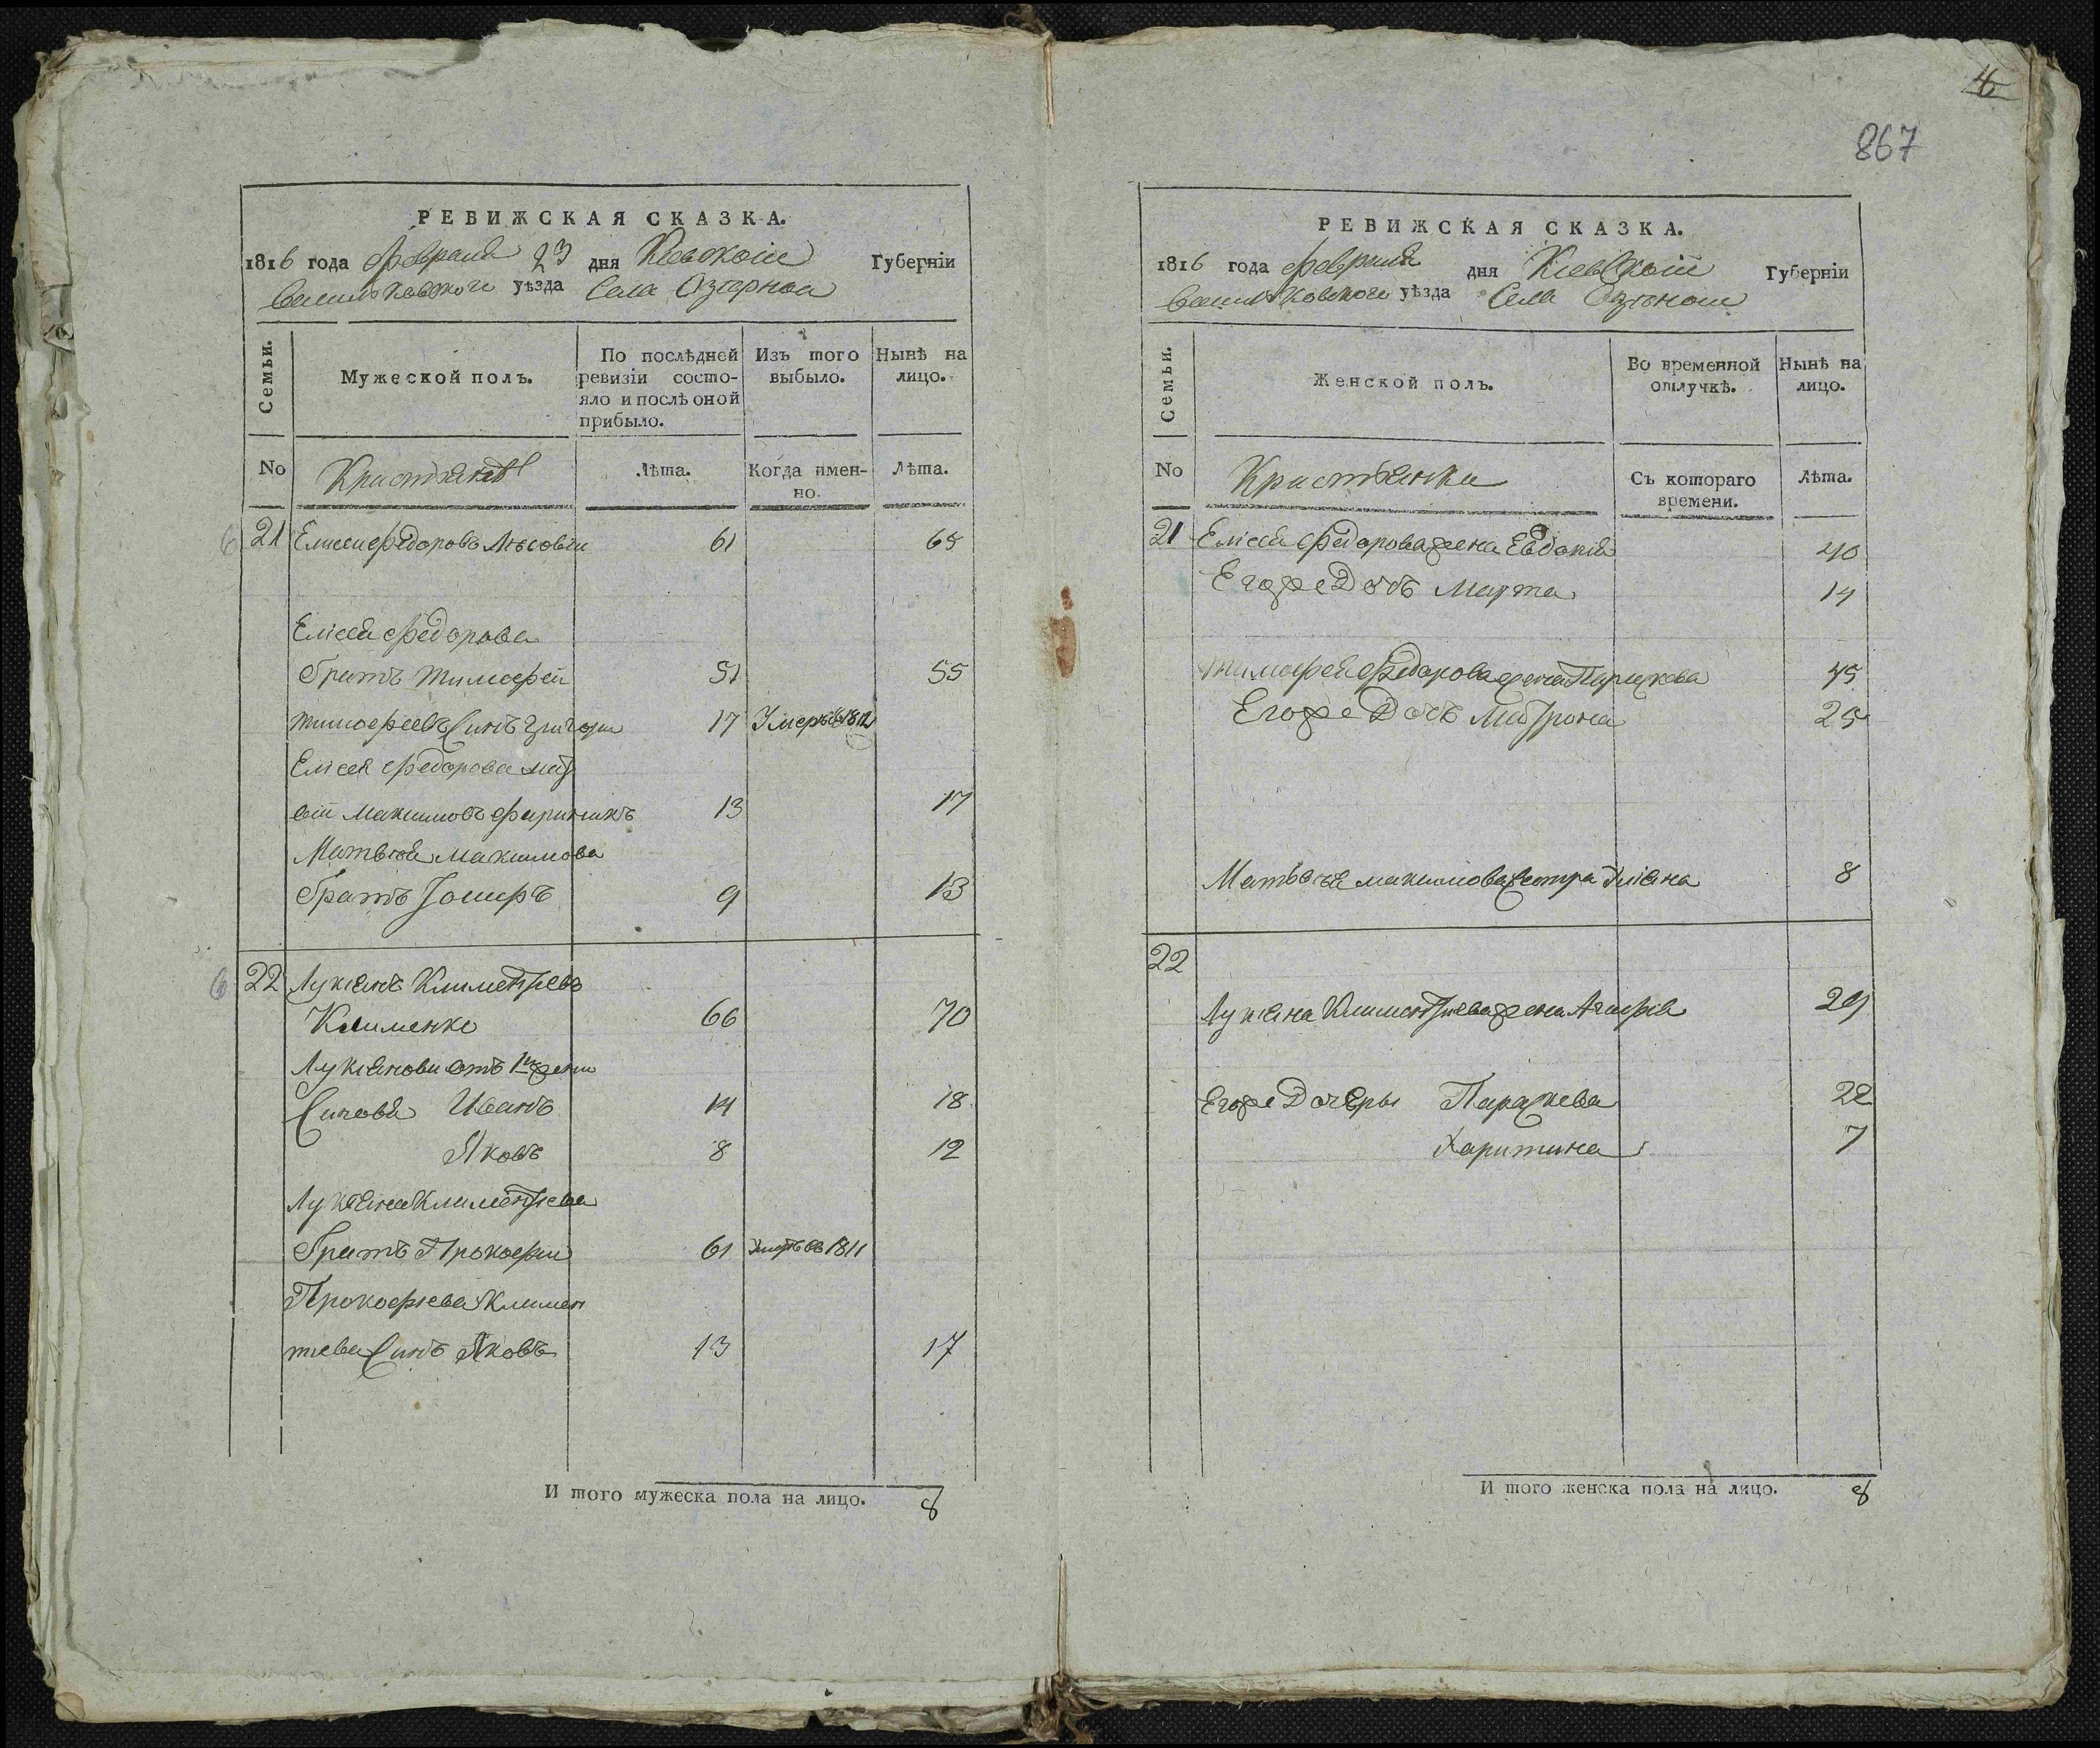 РЕВИЖСКАЯ СКАЗКА.
1816 года февраля 23 дня Киевской Губерніи
Васильковского уѣзда Села Озерной
Семьи.
Мужеской полъ.
По послѣдней ревизіи состо-
яло и послѣ оной
прибыло.
Изъ того
выбыло.
Нынѣ на
лицо.
No
Лѣта.
Когда имен-
но.
Лѣта.
21 Елисей Федоровъ 61 65
Елисея Федорова
братъ Тимофей 51 55
Тимофеевъ Синъ Григорій 17 Умеръ въ 1812
Елисея Федорова
Максимовъ 13 17
Матвея Максимова
братъ 9 13
22 Лукіянъ Климентіевъ
Клименко 66 70
Лукіянови отъ 1й жени
Синовя Иванъ 14 18
Яковъ 8 12
Лукіяна Климентіева
братъ Прокофій 61 Умеръ въ 1811
Прокофіева Климен
тіева Синъ Яковъ 13 17
И того мужеска пола на лицо. 8
4
867
РЕВИЖСКАЯ СКАЗКА.
1816 года февраля дня Киевской Губерніи
Васильковского уѣзда Села
Семьи.
Женской полъ.
Во временной
отлучкѣ.
Нынѣ на
лицо.
No
Съ котораго
времени.
Лѣта.
21 Елісея Федорова жена Евдокія 40
Егоже Дочь Марта 14
Тимофея Федорова жена Параскева 45
Егоже Дочь Матрона 25
Матвея Максимова Сестра 8
22
Лукіяна Климентіева жена Агафія 29
Егоже Дочеры Параскева 22
Харитина 7
И того женска пола на лицо. 8